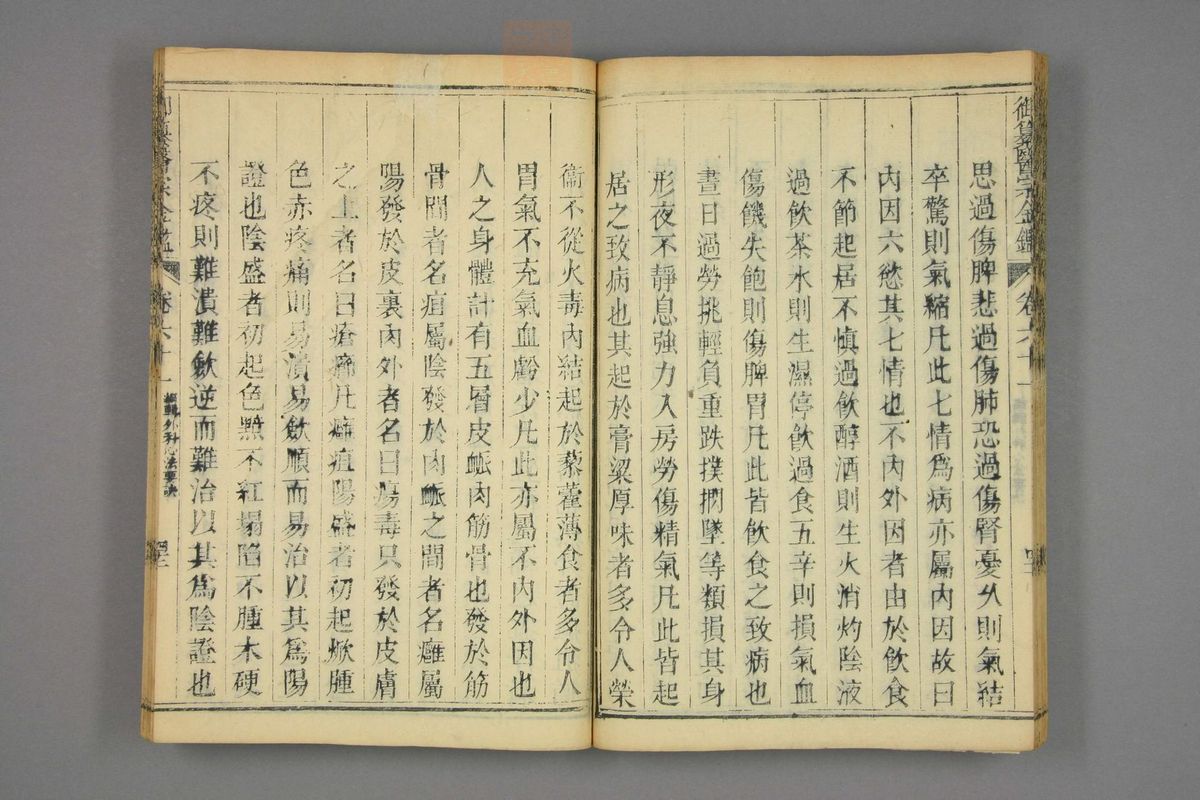 御纂醫宗金鑑 卷六十一
思過傷脾悲過傷肺恐過傷腎憂久則氣結
卒驚則氣縮凡此七情為病亦屬內因故曰
內因六慾共七情也不內外因者由於飲食
不節起居不慎過飲醇酒則生火消灼陰液
過飲茶水則生濕停飲過食五辛則損氣血
傷饑失飽則傷脾胃凡此皆飲食之致病也
晝日過勞挑輕負重跌撲閃墜等類損其身
形夜不靜息強力入房勞傷精氣凡此皆起
居之致病也其起於膏粱厚味者多令人榮
衞不從火毒內結起於藜藿薄食者多令人
胃氣不充氣血虧少凡此亦屬不內外因也
人之身體計有五層皮脈肉筋骨也發於筋
骨間者名疽屬陰發於肉脈之間者名癰屬
陽發於皮裏肉外者名曰瘍毒只發於皮膚
之上者名曰瘡癤凡癰疽陽盛者初起焮腫
色赤疼痛則易潰易斂順而易治以其為陽
證也陰盛者初起色黯不紅塌陷不腫木硬
不疼則難潰難斂逆而難治以其為陰證也
卷六十一 編輯外科心法要訣